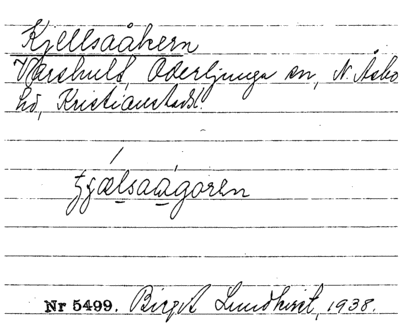 Kjellsaåkern
Varshult, Oderljunga sn, N. Åsbo
hd, Kristianstads l.
Nr 5499. Birgit Lundkvist, 1938.